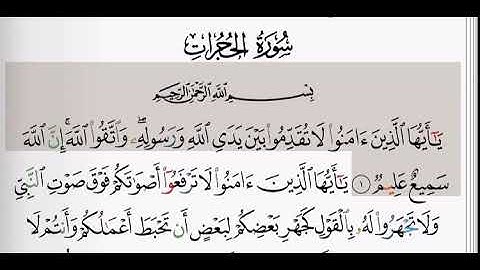 سُورَةُ الحُجُرَاتِ
بِسْمِ اللَّهِ الرَّحْمَٰنِ الرَّحِيمِ
يَٰٓأَيُّهَا ٱلَّذِينَ ءَامَنُوا۟ لَا تُقَدِّمُوا۟ بَيْنَ يَدَىِ ٱللَّهِ وَرَسُولِهِۦ ۖ وَٱتَّقُوا۟ ٱللَّهَ ۚ إِنَّ ٱللَّهَ
سَمِيعٌ عَلِيمٌ ١ يَٰٓأَيُّهَا ٱلَّذِينَ ءَامَنُوا۟ لَا تَرْفَعُوٓا۟ أَصْوَٰتَكُمْ فَوْقَ صَوْتِ ٱلنَّبِىِّ
وَلَا تَجْهَرُوا۟ لَهُۥ بِٱلْقَوْلِ كَجَهْرِ بَعْضِكُمْ لِبَعْضٍ أَن تَحْبَطَ أَعْمَٰلُكُمْ وَأَنتُمْ لَا